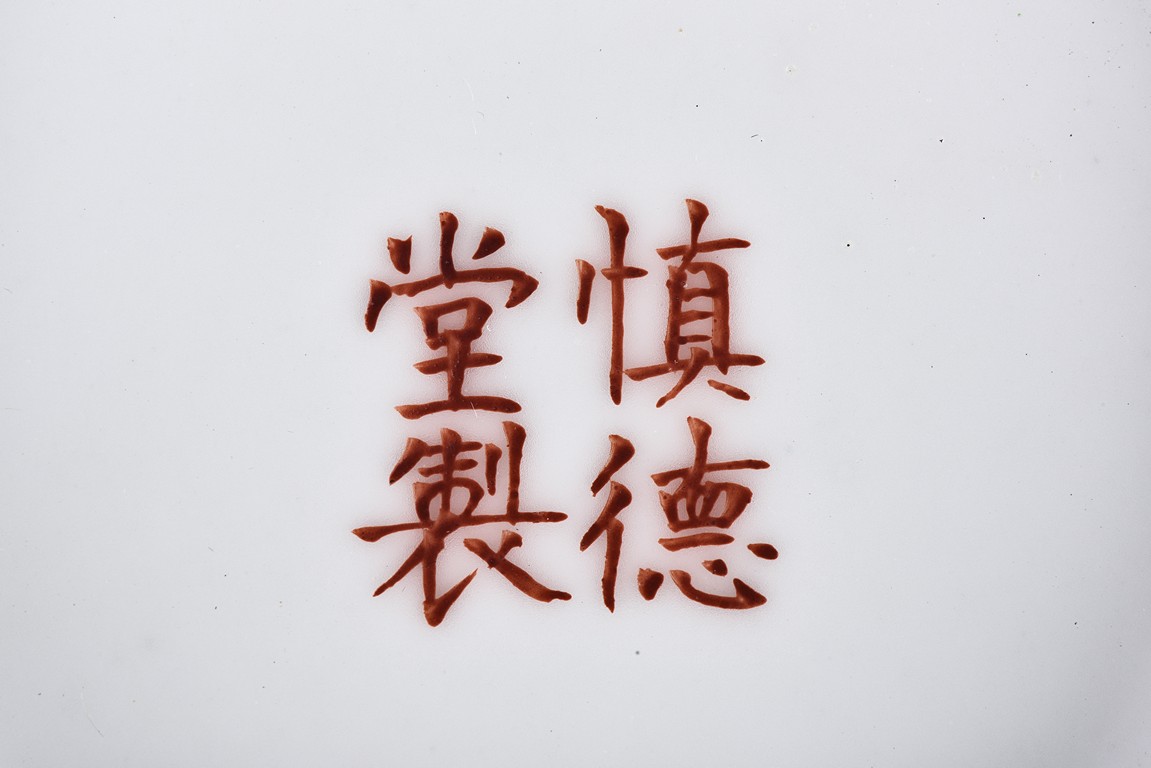 慎德
堂製